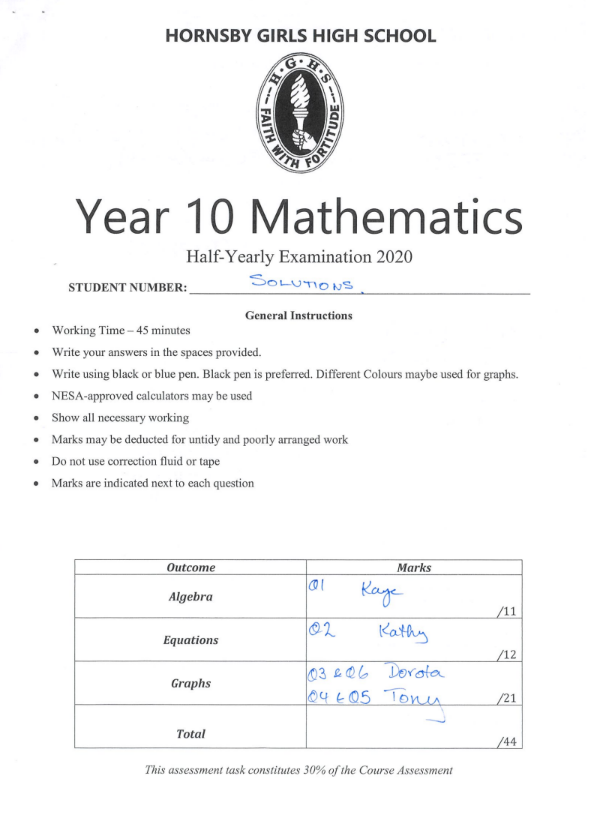 HORNSBY GIRLS HIGH SCHOOL
H·G·H·S
FAITH WITH FORTITUDE
Year 10 Mathematics
Half-Yearly Examination 2020
STUDENT NUMBER: SOLUTIONS.
General Instructions
• Working Time – 45 minutes
• Write your answers in the spaces provided.
• Write using black or blue pen. Black pen is preferred. Different Colours maybe used for graphs.
• NESA-approved calculators may be used
• Show all necessary working
• Marks may be deducted for untidy and poorly arranged work
• Do not use correction fluid or tape
• Marks are indicated next to each question
Outcome Marks
Algebra Q1 Kaye /11
Equations Q2 Kathy /12
Graphs Q3 & Q6 Dorota
Q4 & Q5 Tony /21
Total /44
This assessment task constitutes 30% of the Course Assessment